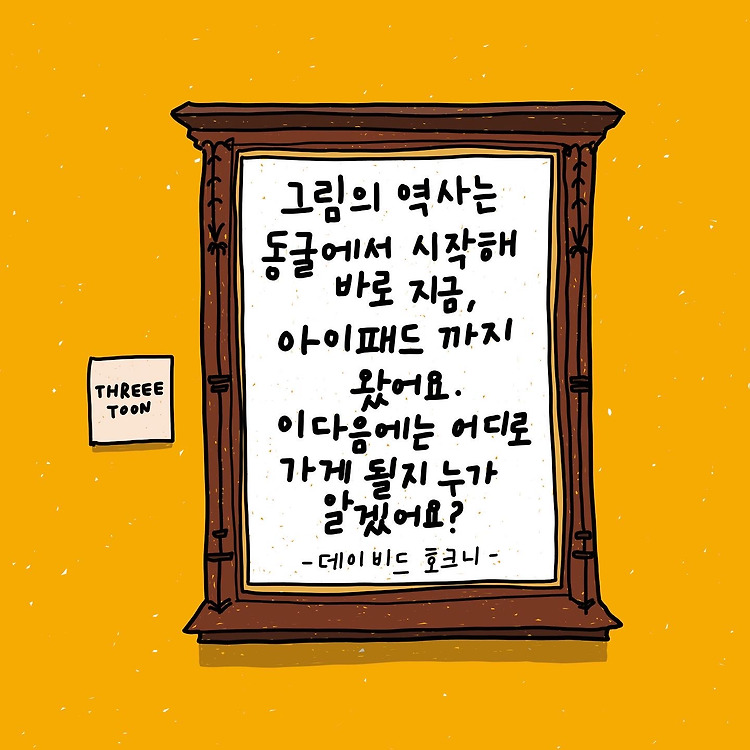 그림의 역사는
동굴에서 시작해
바로 지금,
아이패드 까지
왔어요.
이다음에는 어디로
가게 될지 누가
알겠어요?
-데이비드 호크니-
THREEE
TOON